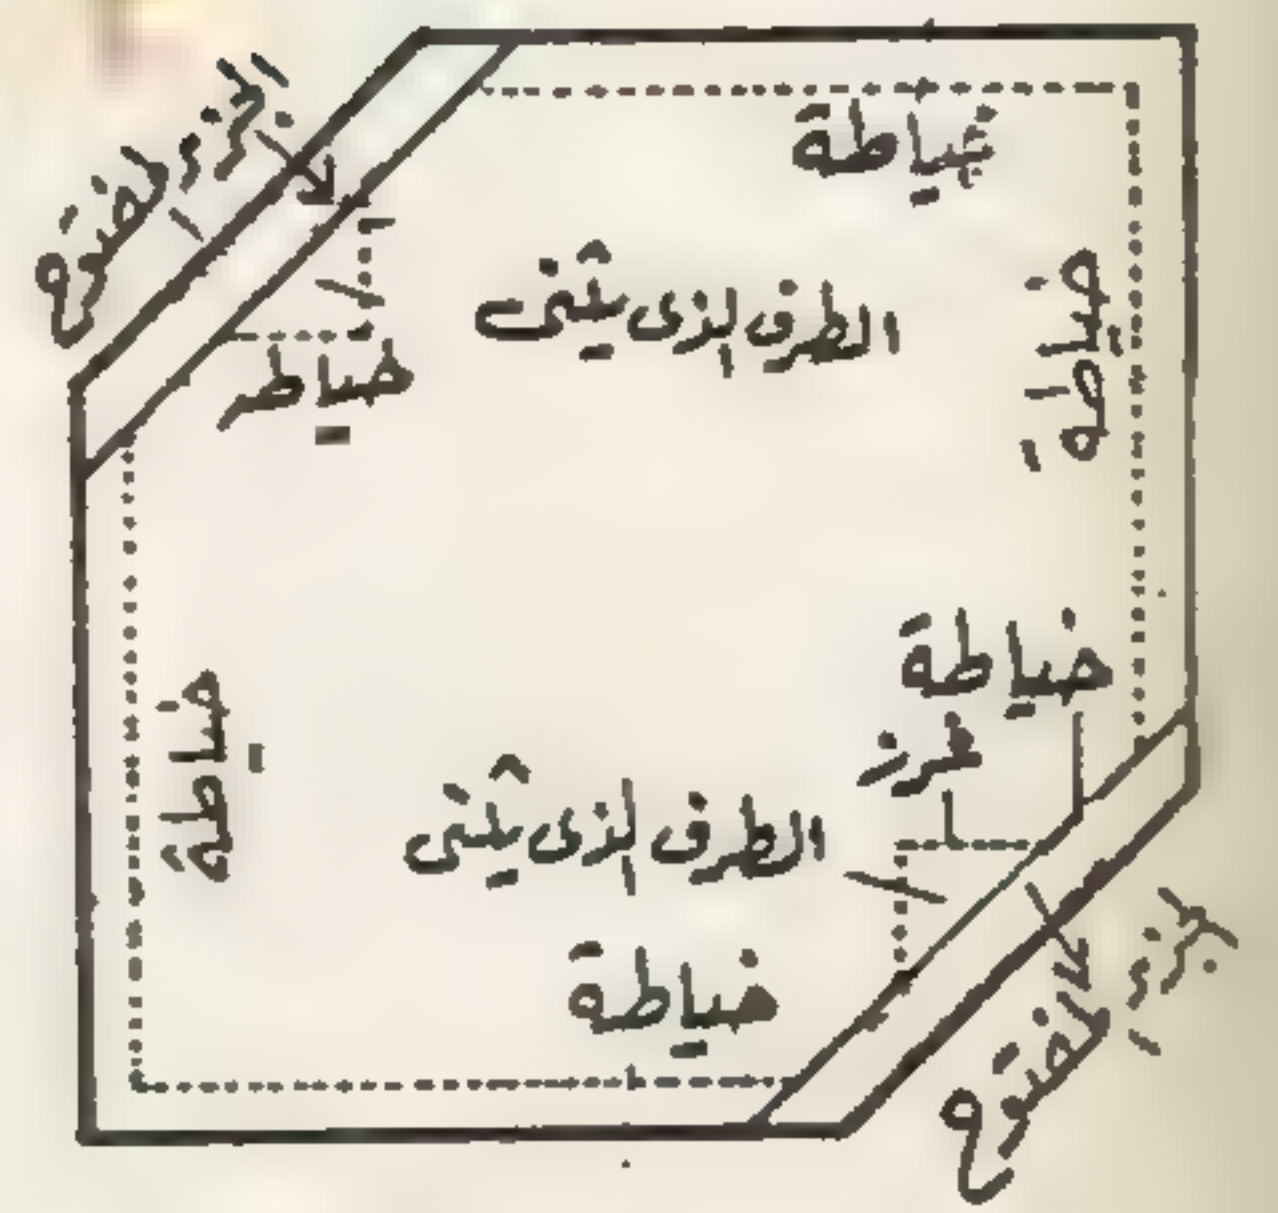 الجزء المفتوح
خياطة
الطرف الذى يثنى
خياطة
خياطة
خياطة
غرز
خياطة
الطرف الذى يثنى
خياطة
الجزء المفتوح